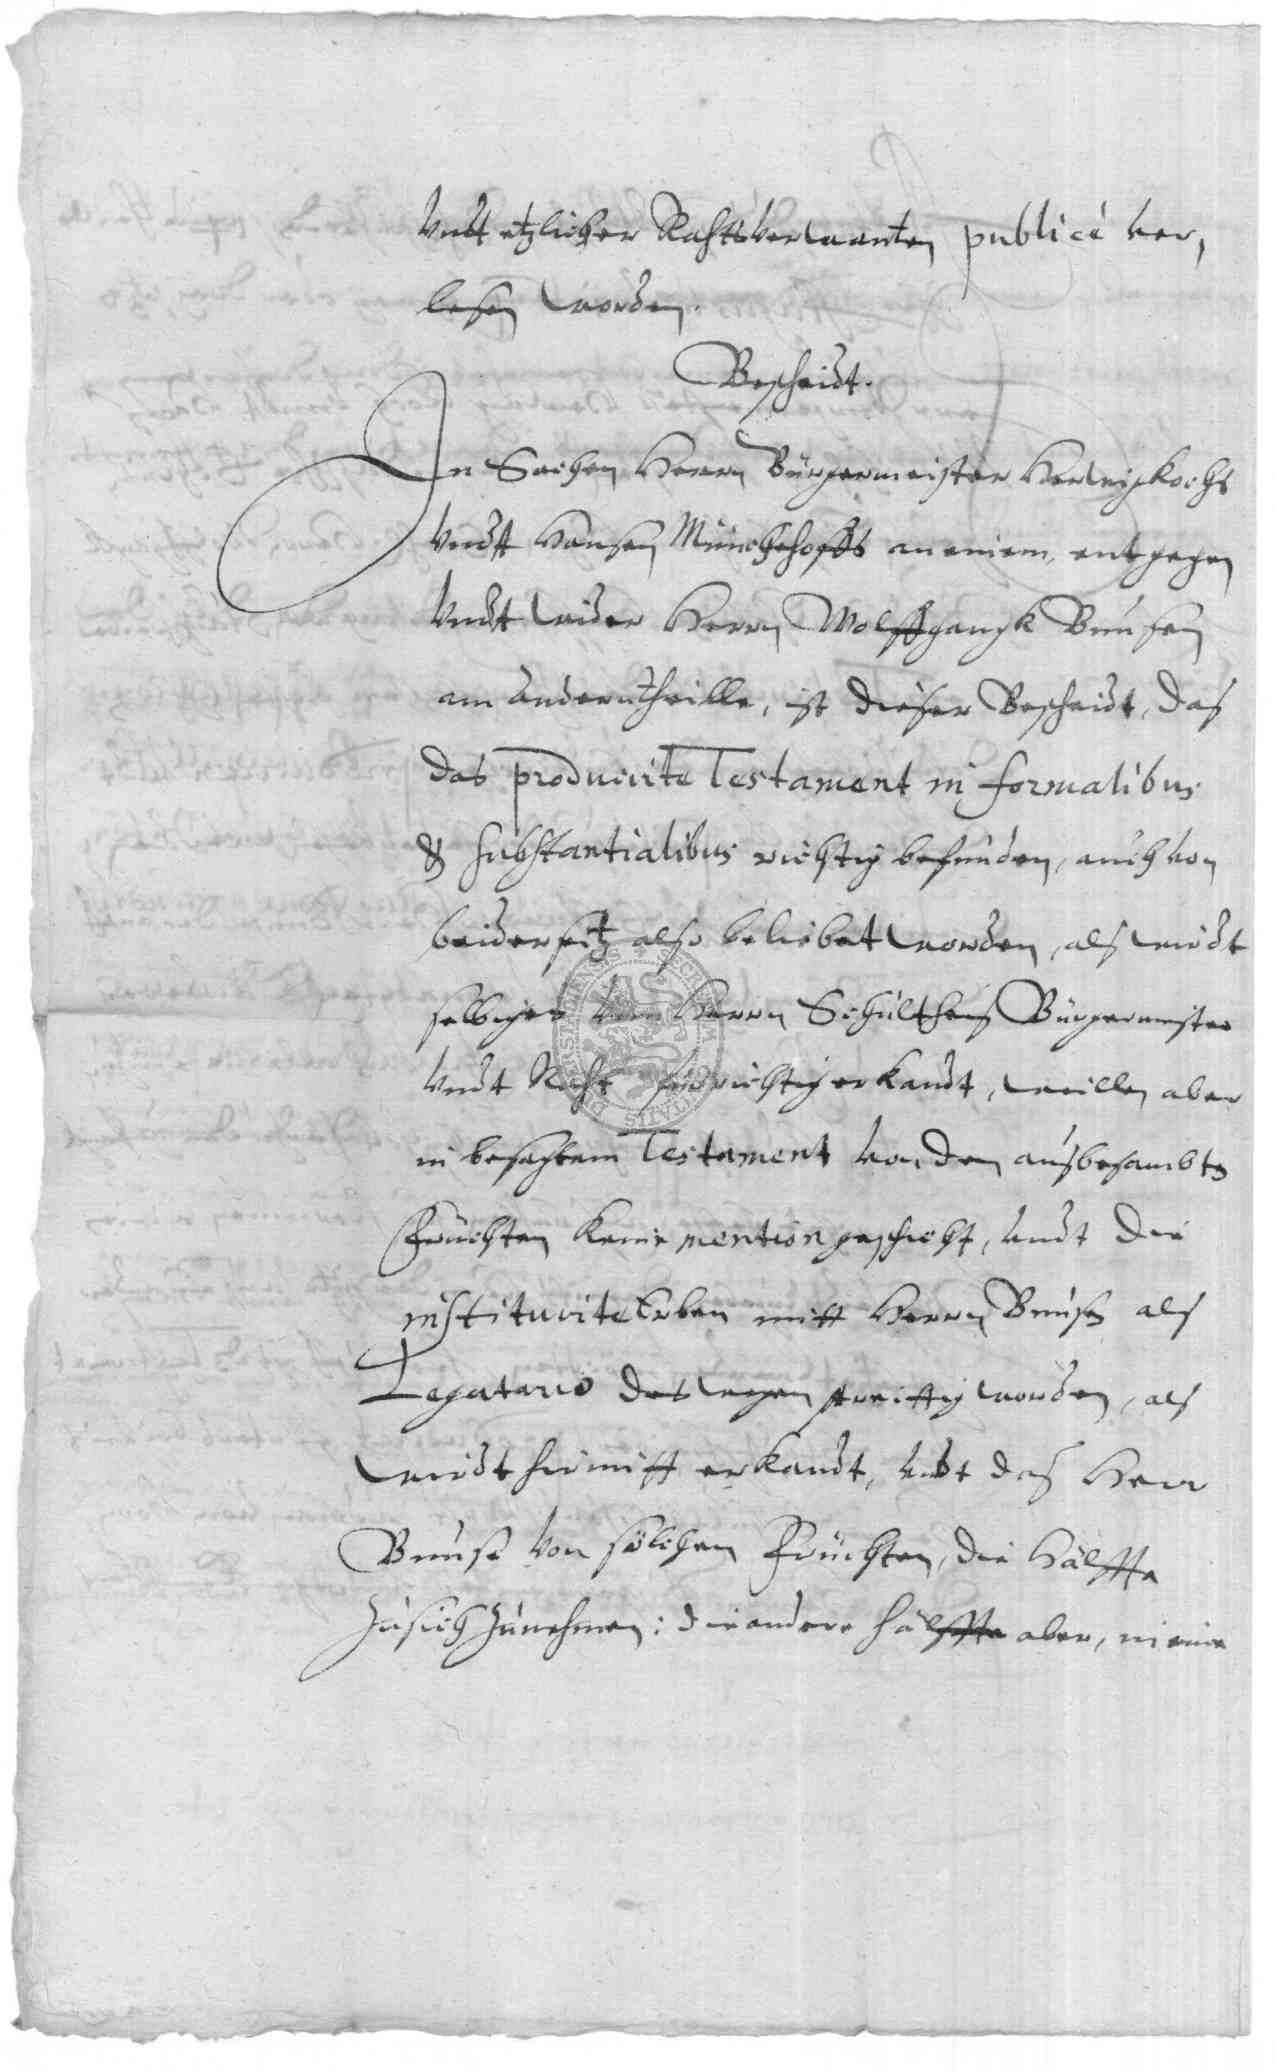 Undt etzlicher Rahtsverwanten publicè ver,
lesen worden.
Bescheidt.
In Sachen Herrn Bürgermeister Herwig Kochs
Undt Hansen Münchehoffs an einem, entgegen
Undt wider Herrn Wolffgangk Bunsen
am Anderntheille, ist dieser Bescheidt, das
das producirte Testament in formalibus
& substantialibus richtig befunden, auch von
beiderseitz also beliebet worden, als wirdt
selbiges von Herrn Schultheis Bürgermeister
Undt Raht für richtig erkandt, weillen aber
in besagtem Testament von den ausbesambten
Früchten keine mention geschicht, undt die
instituirte Erben mitt Herrn Bunsen als
Legatario deswegen streittig worden, als
wirdt hiemitt erkandt, undt das Herr
Bunse von solchen Früchten, die Hälffte
zu sich zunehmen: die andere hälffte aber, in eine
SECRETUM CIVITATIS